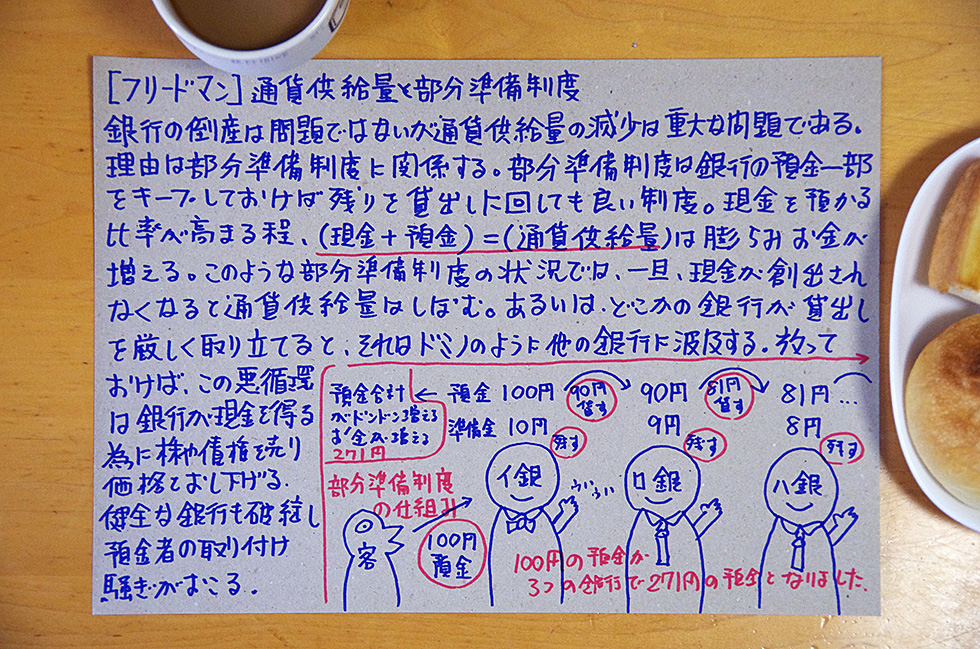 [フリードマン]通貨供給量と部分準備制度
銀行の倒産は問題ではないが通貨供給量の減少は重大な問題である。
理由は部分準備制度に関係する。部分準備制度は銀行の預金一部
をキープしておけば残りを貸出しに回しても良い制度。現金を預かる
比率が高まる程、(現金+預金)=(通貨供給量)は膨らみお金が
増える。このような部分準備制度の状況では、一旦、現金が創出され
なくなると通貨供給量はしぼむ。あるいは、どこかの銀行が貸出し
を厳しく取り立てると、それはドミノのように他の銀行に波及する。放って
おけば、この悪循環
は銀行が現金を得る
為に株や債権を売り
価格をおし下げる.
健全な銀行も破綻し
預金者の取り付け
騒ぎがおこる.
預金合計
がドンドン増える
お金が増える
271円
預金 100円 90円貸す 90円 81円貸す 81円…
準備金 10円 残す 9円 残す 8円 残す
部分準備制度
の仕組み
イ銀
ういうい
ロ銀
ハ銀
客
100円
預金
100円の預金が
3つの銀行で271円の預金となりました.